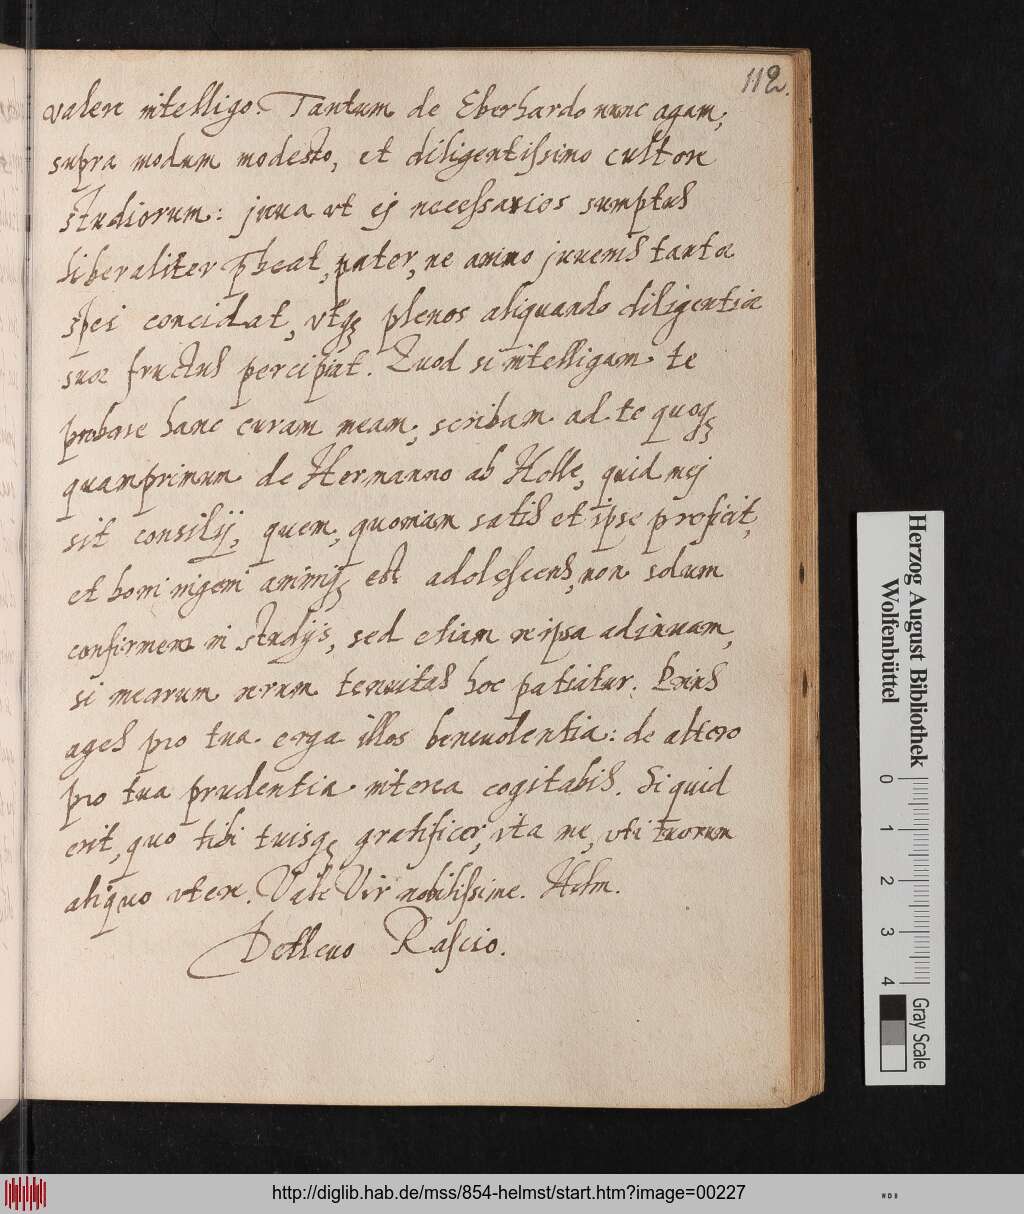 112.
valere intelligo. Tantum de Eberhardo nunc agam;
supra modum modesto, et diligentissimo cultore
studiorum: juua vt ej necessarios sumptus
liberaliter p̱beat, pater, ne animo juuenis tantæ
spei concidat, vtq̱ plenos aliquando diligentiæ
suæ fructus percipiat. Quod si intelligam te
probare hanc curam meam, scribam ad te quoq̱
quamprimum de Hermanno ab Holle, quid mej
sit consilij, quem, quoniam satis et ipse proficit,
et boni ingeni animiq̱ est adolescens, non solum
confirmem in studijs, sed etiam reipsa adinuam,
si mearum rerum tenuitas hoc patiatur. Prius
ages pro tua erga illos beneuolentia: de altero
pro tua prudentia interea cogitabis. Si quid
erit, quo tibi tuisq̱ gratificer, ita me, vti tuorum
aliquo vtere. Vale Vir nobilissime. Helm.
Detleuo Rascio.
Herzog August Bibliothek
Wolfenbüttel
0 1 2 3 4
Gray Scale
http://diglib.hab.de/mss/854-helmst/start.htm?image=00227